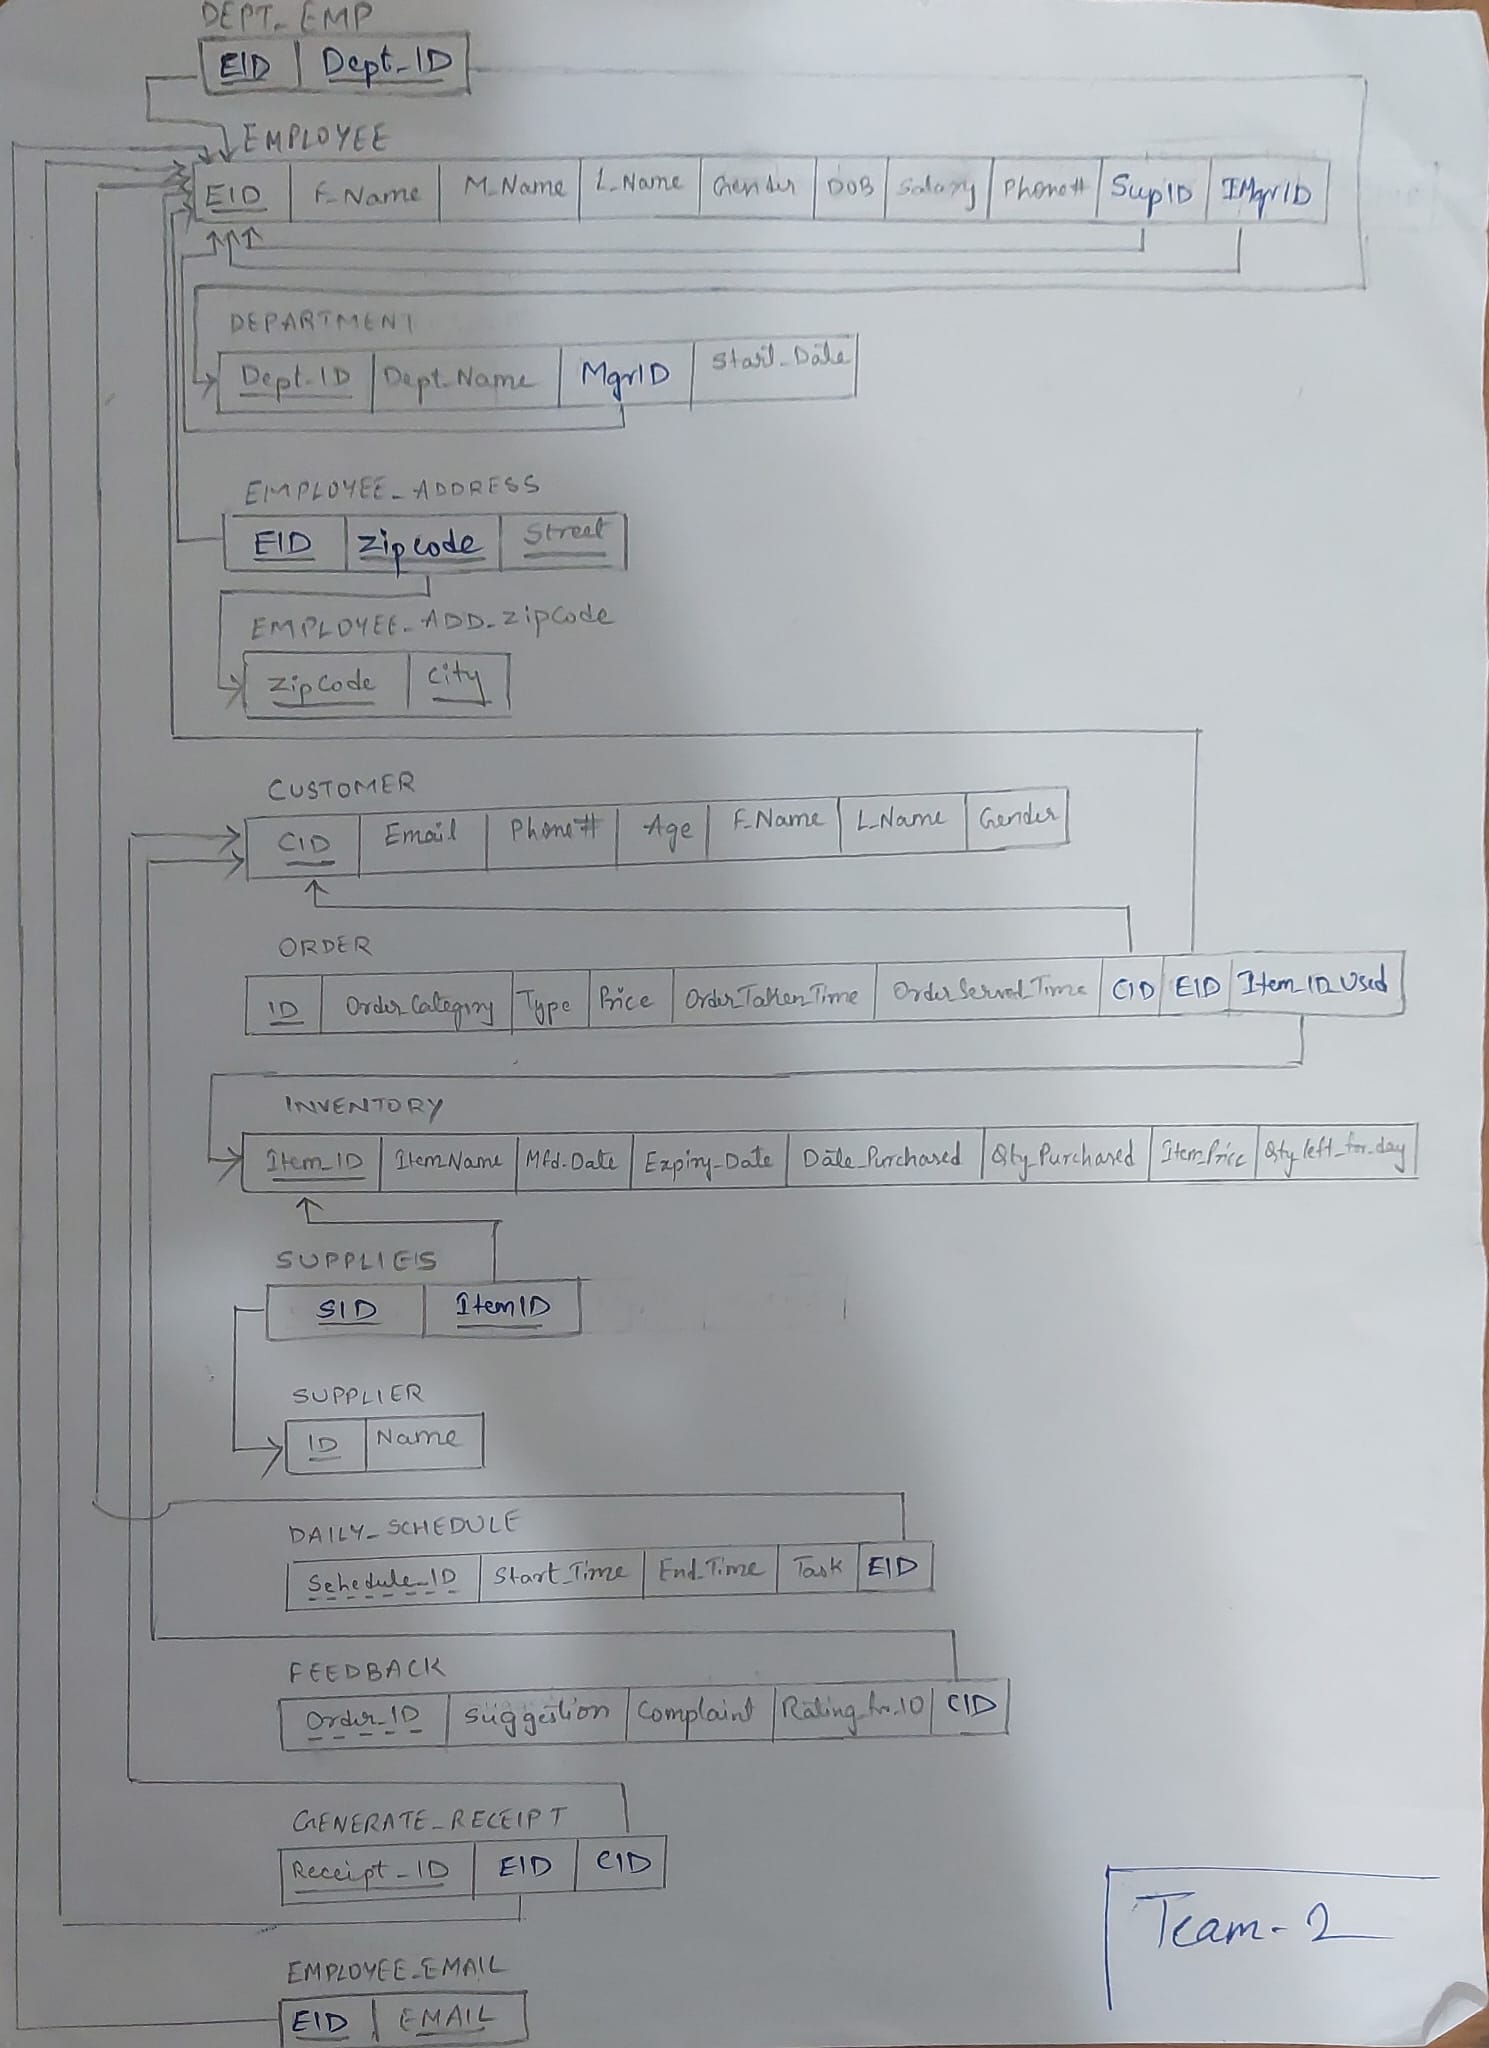 DEPT_EMP
EID Dept_ID
EMPLOYEE
EID F_Name M_Name L_Name Gender DOB Salary Phone# SupID IMgrID
DEPARTMENT
Dept_ID Dept_Name MgrID Start_Date
EMPLOYEE_ADDRESS
EID Zipcode Street
EMPLOYEE_ADD_ZipCode
ZipCode City
CUSTOMER
CID Email Phone# Age F_Name L_Name Gender
ORDER
ID Order_Category Type Price Order_Taken_Time Order_Served_Time CID EID Item_ID_Used
INVENTORY
Item_ID Item_Name Mfd_Date Expiry_Date Date_Purchased Qty_Purchased Item_Price Qty_left_for_day
SUPPLIES
SID ItemID
SUPPLIER
ID Name
DAILY_SCHEDULE
Schedule_ID Start_Time End_Time Task EID
FEEDBACK
Order_ID Suggestion Complaint Rating_for_10 CID
GENERATE_RECEIPT
Receipt_ID EID CID
EMPLOYEE_EMAIL
EID EMAIL
Team-2